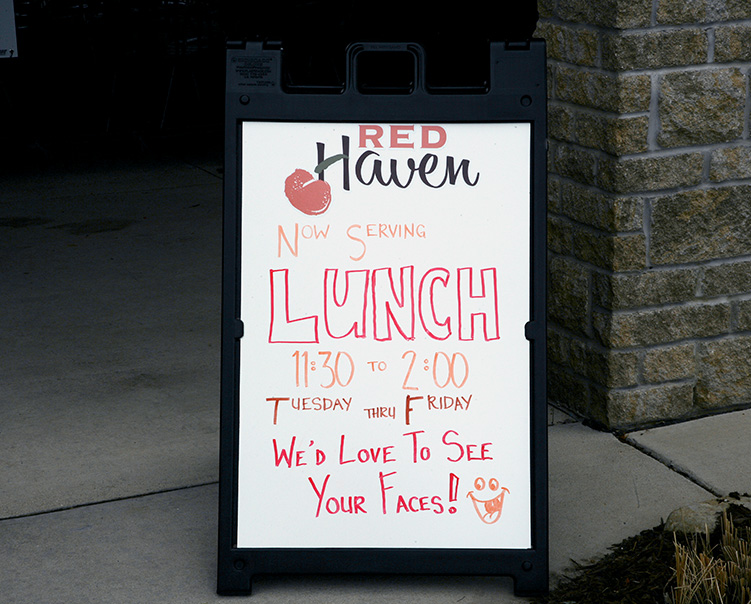 RED
Haven
Now Serving
LUNCH
11:30 to 2:00
Tuesday thru Friday
We'd Love To See
Your Faces!